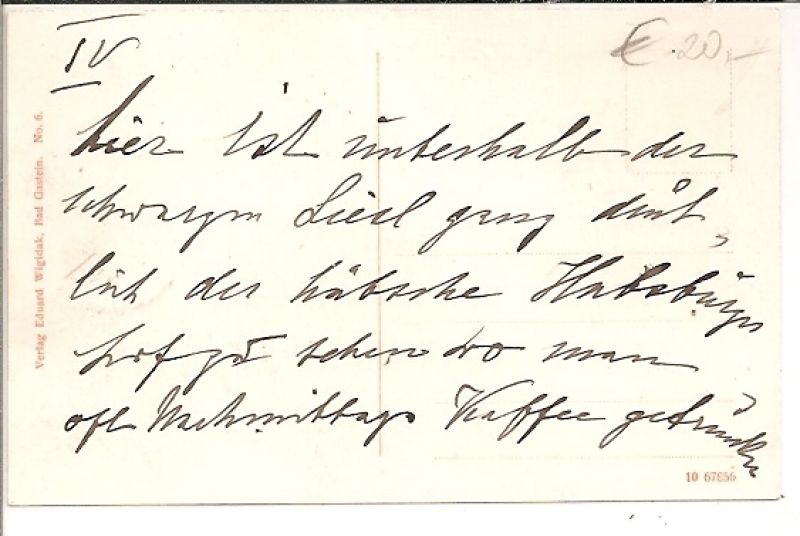 IV
€ 20,-
hier ist unterhalb der
schwarzen Liesl ganz deut-
lich der hübsche Habsburger
hof zu sehen wo man
oft Nachmittags Kaffee getrunken
Verlag Eduard Wigidak, Bad Gastein. No. 6.
10 67856